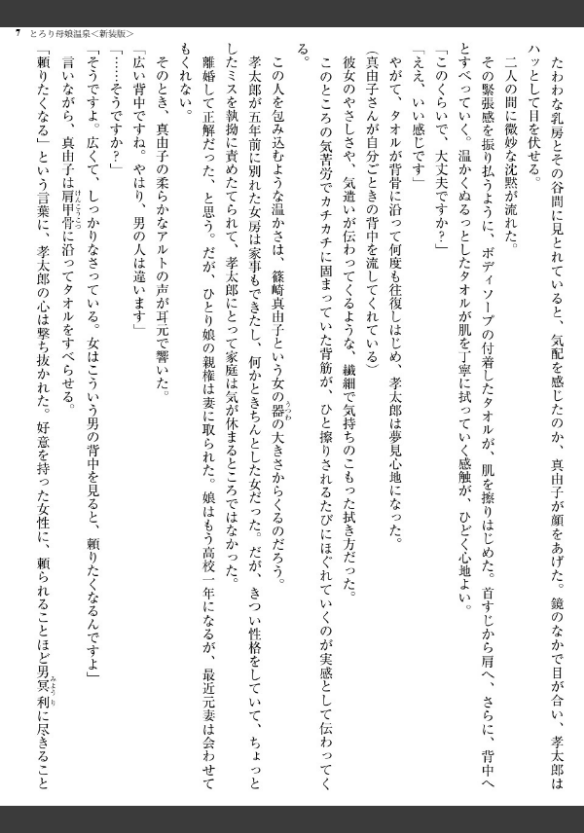 7 とろり母娘温泉＜新装版＞
たわわな乳房とその谷間に見とれていると、気配を感じたのか、真由子が顔をあげた。鏡のなかで目が合い、孝太郎は
ハッとして目を伏せる。
二人の間に微妙な沈黙が流れた。
その緊張感を振り払うように、ボディソープの付着したタオルが、肌を擦りはじめた。首すじから肩へ、さらに、背中へ
とすべっていく。温かくぬるっとしたタオルが肌を丁寧に拭っていく感触が、ひどく心地よい。
「このくらいで、大丈夫ですか？」
「ええ、いい感じです」
やがて、タオルが背骨に沿って何度も往復しはじめ、孝太郎は夢見心地になった。
（真由子さんが自分ごときの背中を流してくれている）
彼女のやさしさや、気遣いが伝わってくるような、繊細で気持ちのこもった拭き方だった。
このところの気苦労でカチカチに固まっていた背筋が、ひと擦りされるたびにほぐれていくのが実感として伝わってく
る。
この人を包み込むような温かさは、篠崎真由子という女の器の大きさからくるのだろう。
うつわ
孝太郎が五年前に別れた女房は家事もできたし、何かときちんとした女だった。だが、きつい性格をしていて、ちょっと
したミスを執拗に責めたてられて、孝太郎にとって家庭は気が休まるところではなかった。
離婚して正解だった、と思う。だが、ひとり娘の親権は妻に取られた。娘はもう高校一年になるが、最近元妻は会わせて
もくれない。
そのとき、真由子の柔らかなアルトの声が耳元で響いた。
「広い背中ですね。やはり、男の人は違います」
「……そうですか？」
「そうですよ。広くて、しっかりなさっている。女はこういう男の背中を見ると、頼りたくなるんですよ」
言いながら、真由子は肩甲骨に沿ってタオルをすべらせる。
けんこうこつ
「頼りたくなる」という言葉に、孝太郎の心は撃ち抜かれた。好意を持った女性に、頼られることほど男冥利に尽きること
みょうり